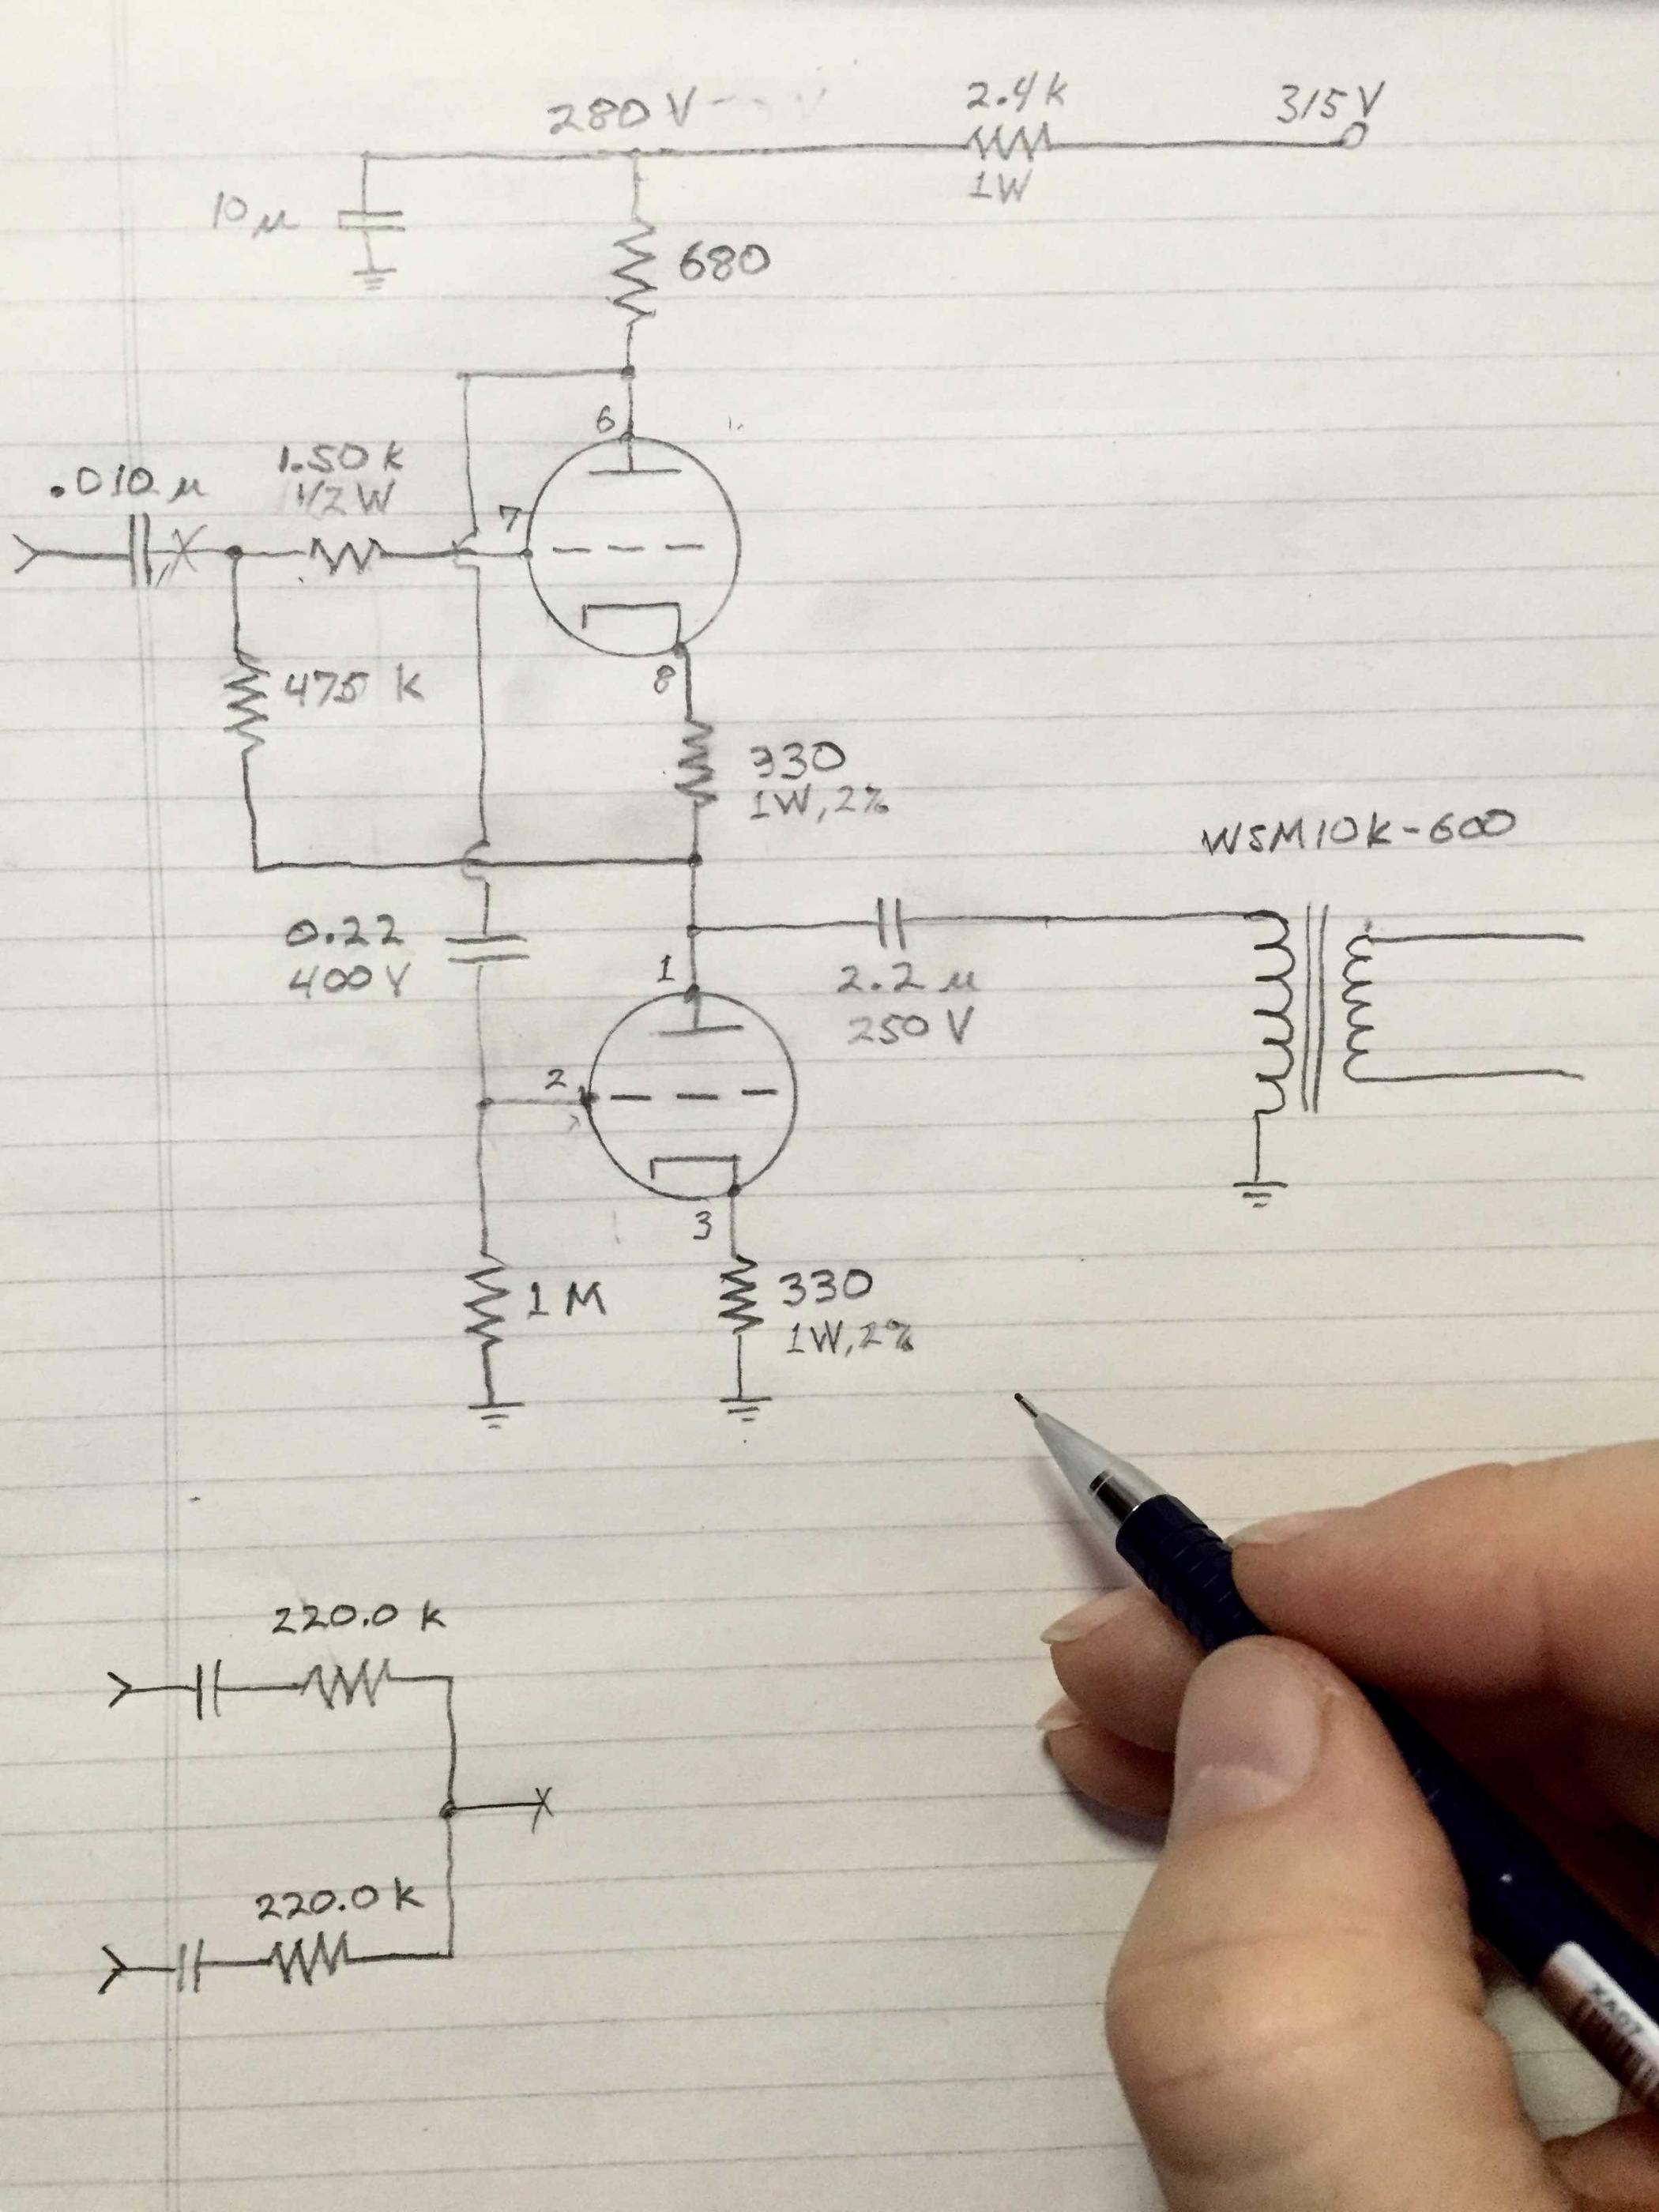 280 V
2.4 k
315 V
1W
10 µ
680
6
1.50 k
1/2 W
.010 µ
7
475 k
8
330
1W, 2%
WSM10K-600
0.22
400 V
1
2.2 µ
250 V
2
3
1 M
330
1W, 2%
220.0 k
220.0 k